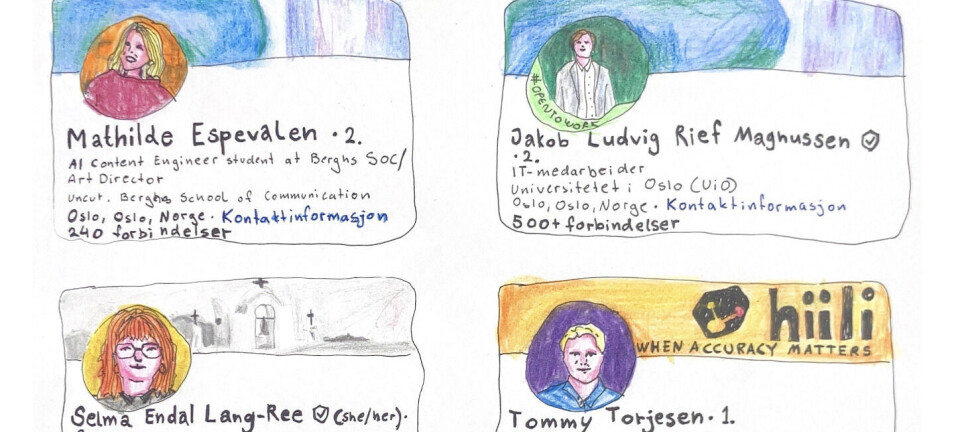 Mathilde Espevalen · 2.
AI Content Engineer student at Berghs SoC/
Art Director
Uncut, Berghs School of Communication
Oslo, Oslo, Norge · Kontaktinformasjon
240 forbindelser
#OPENTOWORK
Jakob Ludvig Rief Magnussen
· 2.
IT-medarbeider
Universitetet i Oslo (UiO)
Oslo, Oslo, Norge · Kontaktinformasjon
500+ forbindelser
Selma Endal Lang-Ree (she/her) ·
hiili
WHEN ACCURACY MATTERS
Tommy Torjesen · 1.